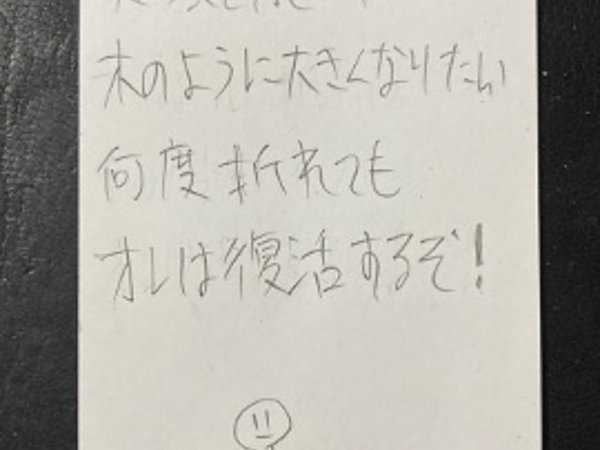 木のように大きくなりたい
何度折れても
オレは復活するぞ!